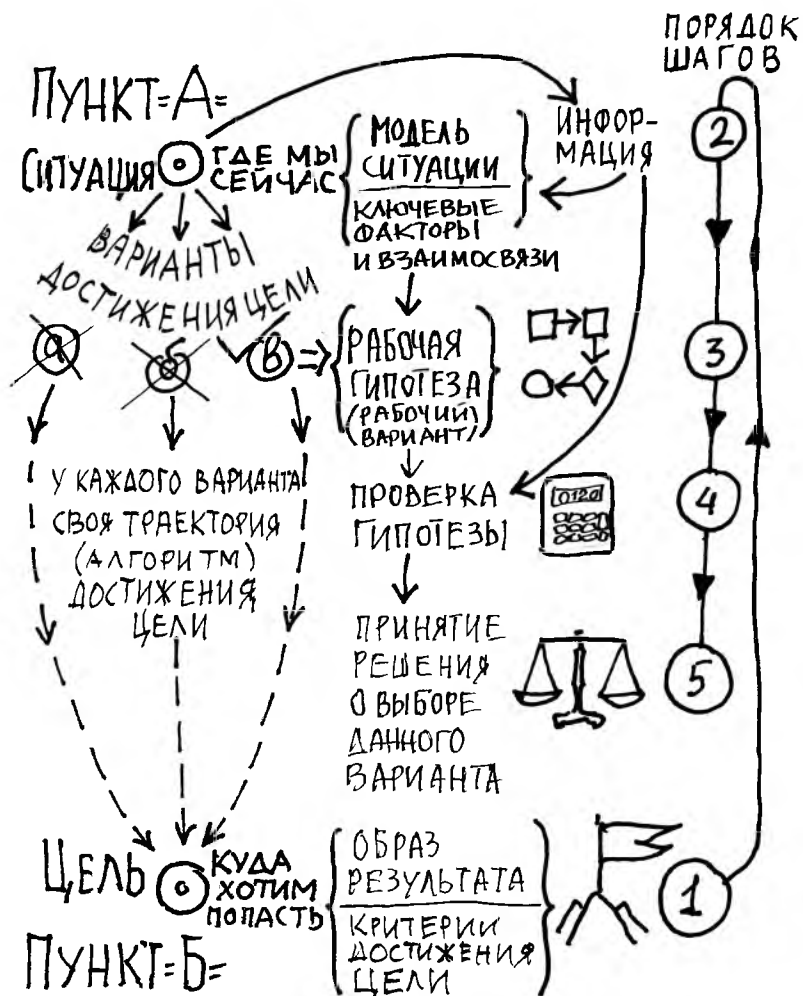 ПОРЯДОК
ШАГОВ
ПУНКТ=А=
СИТУАЦИЯ
ГДЕ МЫ
СЕЙЧАС
МОДЕЛЬ
СИТУАЦИИ
КЛЮЧЕВЫЕ
ФАКТОРЫ
И ВЗАИМОСВЯЗИ
ИНФОР-
МАЦИЯ
2
ВАРИАНТЫ
ДОСТИЖЕНИЯ ЦЕЛИ
а
б
в
РАБОЧАЯ
ГИПОТЕЗА
(РАБОЧИЙ)
(ВАРИАНТ)
3
У КАЖДОГО ВАРИАНТА
СВОЯ ТРАЕКТОРИЯ
(АЛГОРИТМ)
ДОСТИЖЕНИЯ
ЦЕЛИ
ПРОВЕРКА
ГИПОТЕЗЫ
0120
4
ПРИНЯТИЕ
РЕШЕНИЯ
О ВЫБОРЕ
ДАННОГО
ВАРИАНТА
5
ЦЕЛЬ
КУДА
ХОТИМ
ПОПАСТЬ
ПУНКТ=Б=
ОБРАЗ
РЕЗУЛЬТАТА
КРИТЕРИИ
ДОСТИЖЕНИЯ
ЦЕЛИ
1